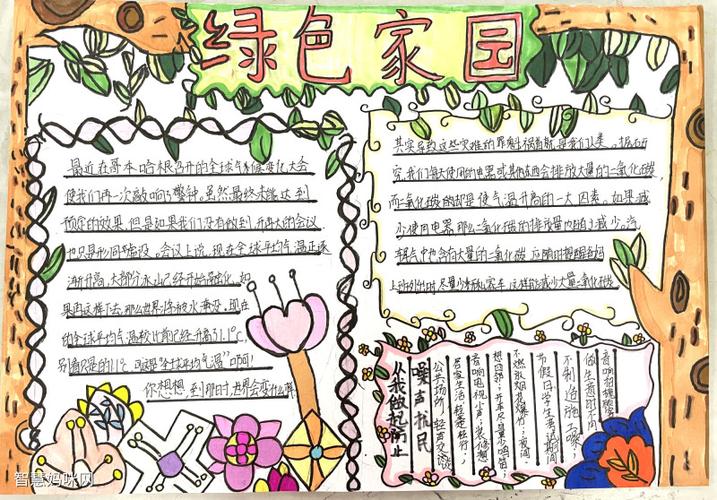 绿色家园
最近在哥本哈根召开的全球气候变化大会
使我们再一次敲响了警钟,虽然最终未能达到
预定的效果,但是如果我们没有做到,再大的会议
也只是形同虚设,会议上说,现在全球平均气温正逐
渐升高,大部分冰山已经开始融化,如
果再这样下去,那么世界将被水淹没,现在
的全球平均气温较计前已经升高了1.1℃,
别看仅是的1.1℃,可这是“全球平均气温”啊!
你想想,到那时,世界会变什么样
其实导致这些灾难的罪魁祸首就是我们人类,据研
究,我们每天使用的电器或其他东西会排放大量的二氧化碳
而二氧化碳的却是使气温升高的一大因素,如果减
少使用电器,那么二氧化碳的排放量也随之减少,汽
车尾气中也含有大量的二氧化碳,应随时提醒爸妈
上班外出时,尽量少开私家车,这样能减少大量二氧化碳
音响招揽顾客
做生意时不用
不制造施工噪
节假日学生考试期间
不燃放烟花爆竹;夜间
想四邻;开车尽量少鸣笛;
音响电视小声;装修想
居家生活,轻走轻行;
公共场所,轻声交谈
噪声扰民
从我做起防止
智慧妈咪网